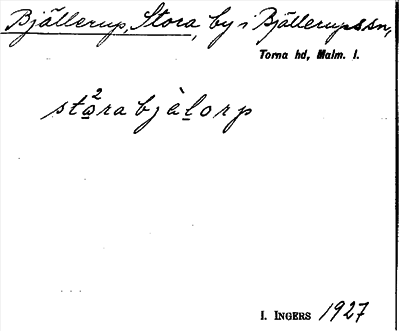 Bjällerup, Stora, by i Bjällerups sn,
Torna hd, Malm. l.
stα̲²ra bjὲl̲orp
I. INGERS 1927